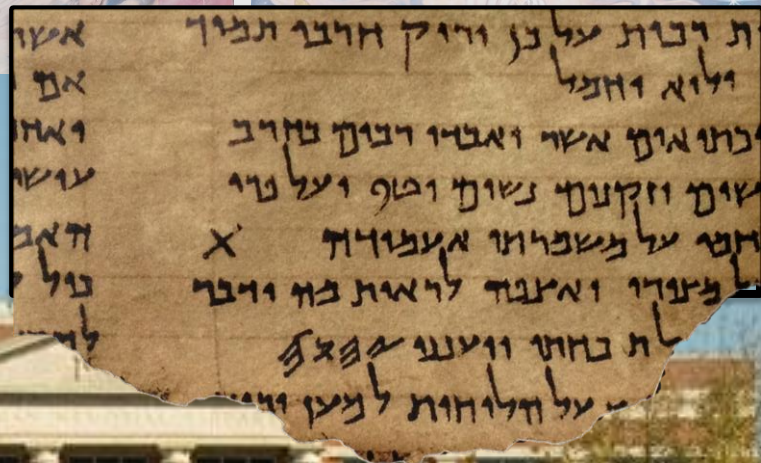 רבות על כן יריק חרבו תמיד
ולוא יחמל
כתיאים אשר יאבדו רבים בחרב
שים וזקנים נשים וטף ועל פרי
חמו על משמרתי אעמודה X
מצורי ואצפה לראות מה ידבר
כחתי ויענני 𐤉𐤄𐤅𐤄
על הלוחות למען
אשר
אם
ואח
עושי
האמ
כול